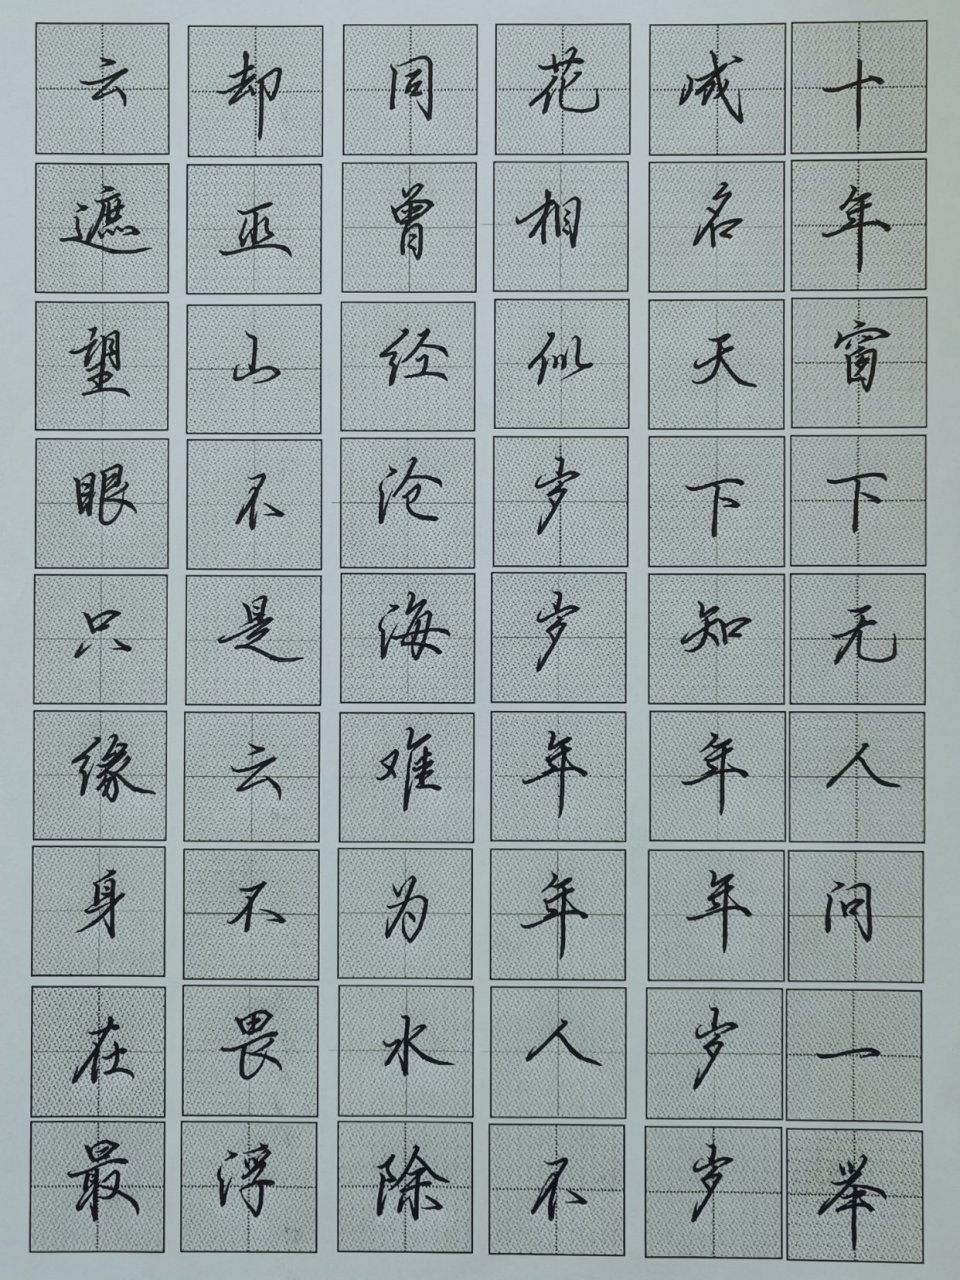 十年窗下无人问一举
成名天下知年年岁岁
花相似岁岁年年人不
同曾经沧海难为水除
却巫山不是云不畏浮
云遮望眼只缘身在最